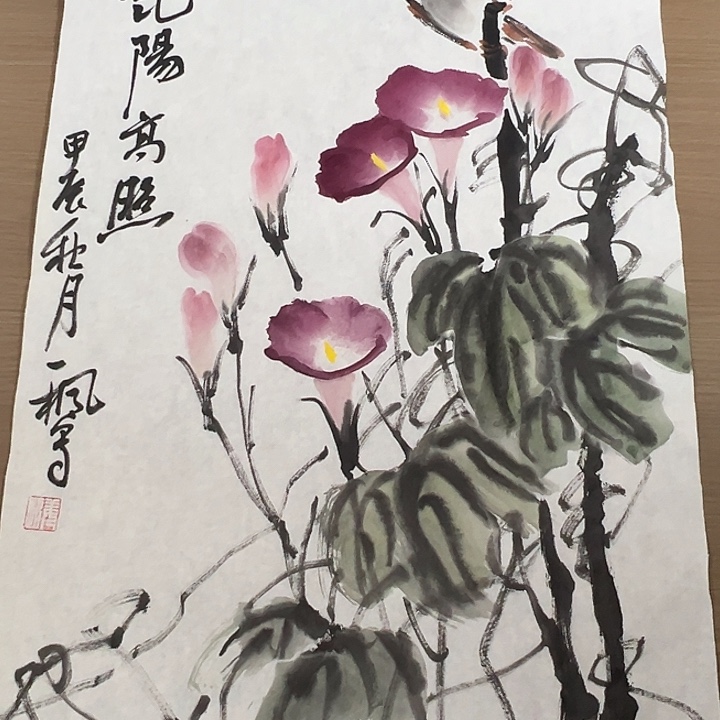 陽高照
甲辰秋月一楓写